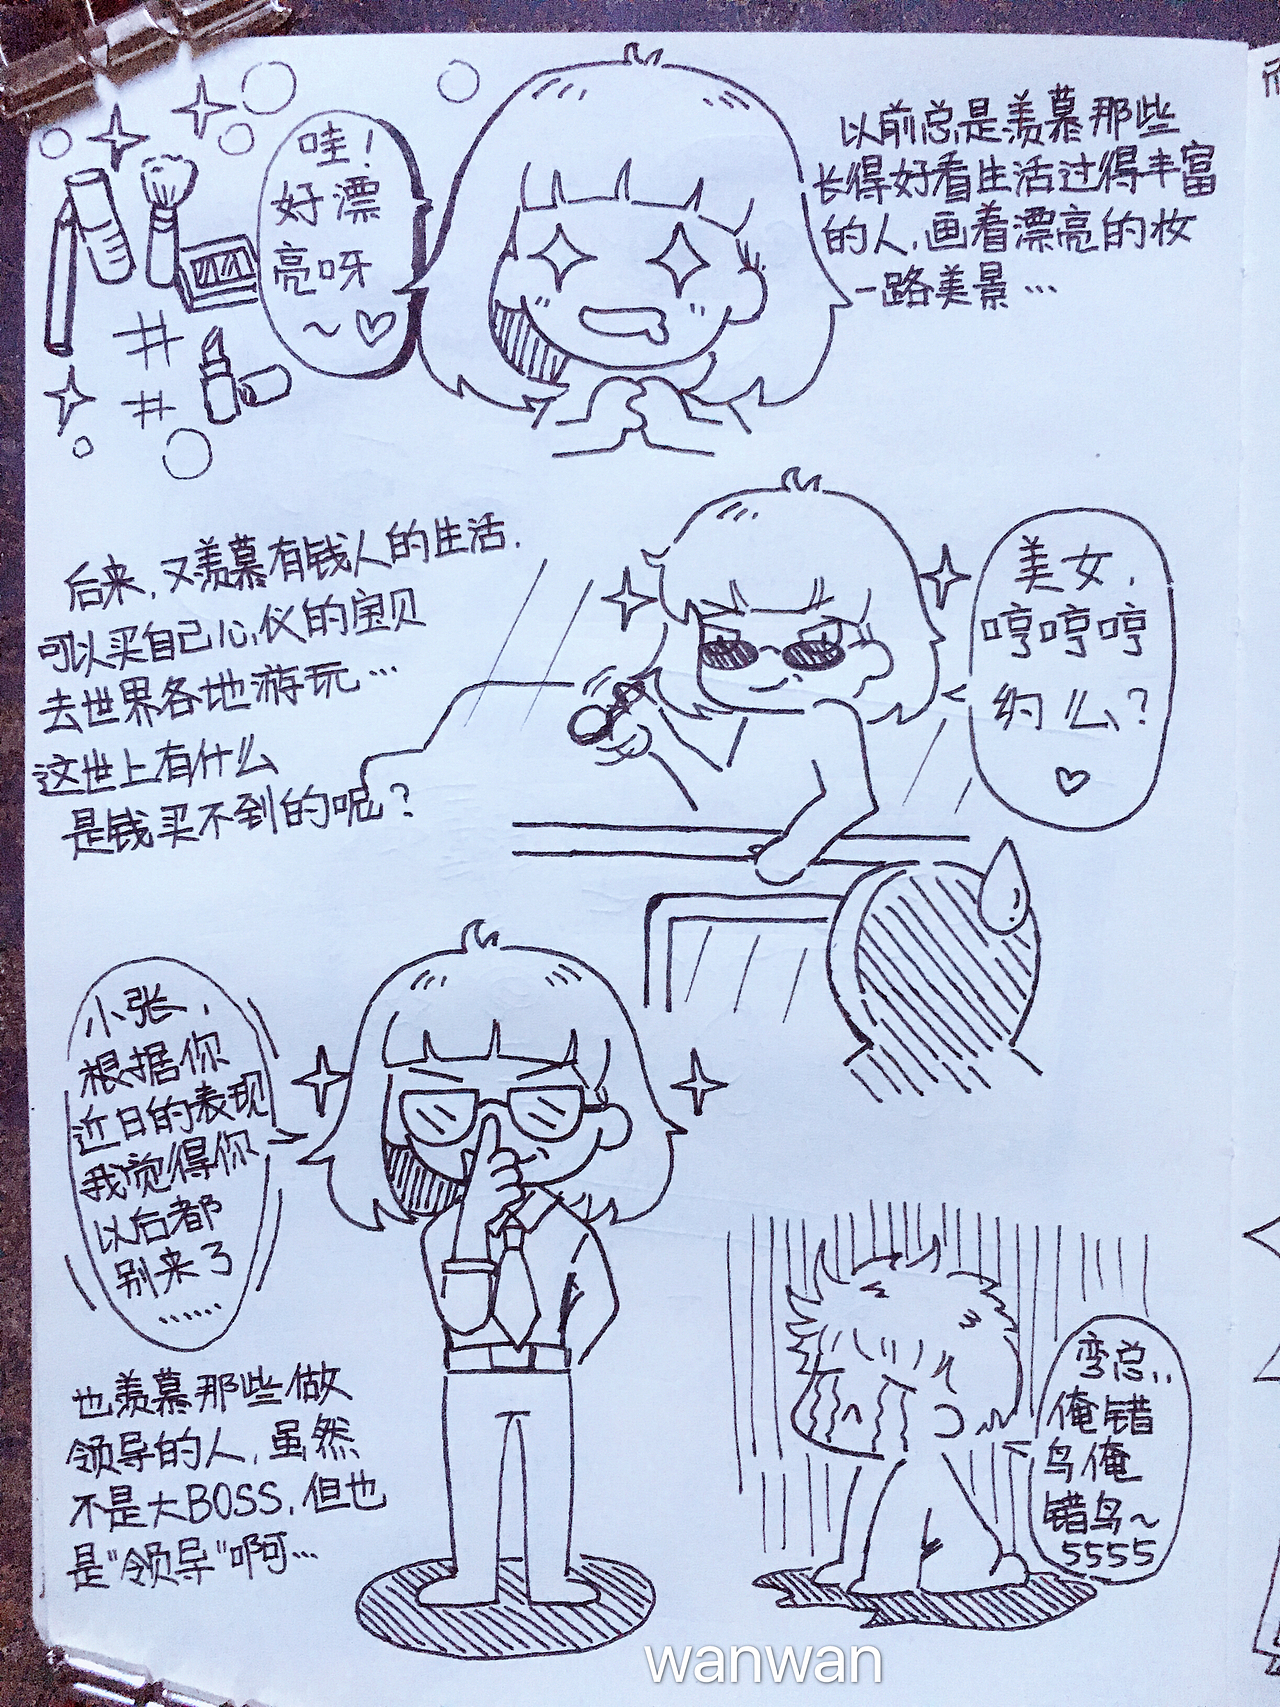 哇！
好漂
亮呀
～♡
以前总是羡慕那些
长得好看生活过得丰富
的人,画着漂亮的妆
一路美景…
后来,又羡慕有钱人的生活.
可以买自己心仪的宝贝
去世界各地游玩…
这世上有什么
是钱买不到的呢？
美女,
哼哼哼
约么？
♡
小张,
根据你
近日的表现
我觉得你
以后都
别来了
……
也羡慕那些做
领导的人,虽然
不是大BOSS,但也
是"领导"啊…
弯总..
俺错
鸟俺
错鸟~
5555
wanwan